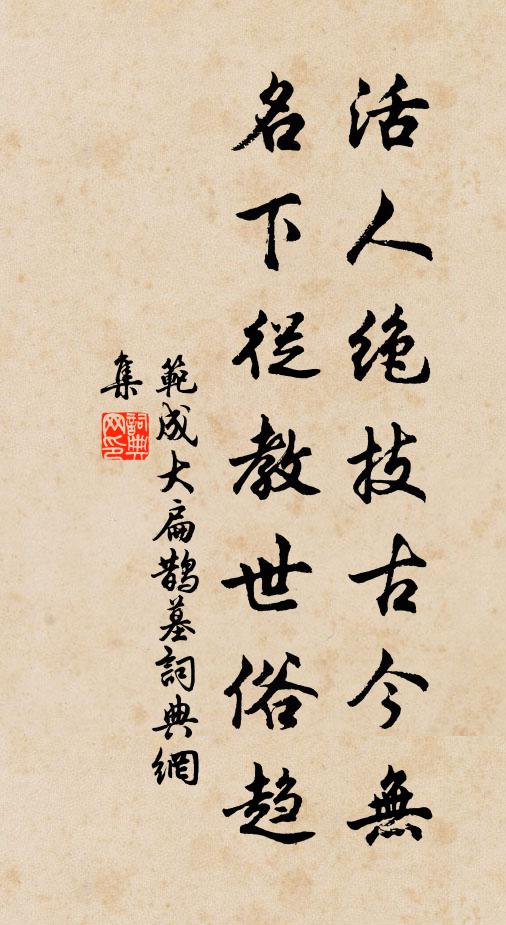 活人绝技古今無
名下從教世俗趋
範成大扁鵲墓詞典網
集
詞典
网印